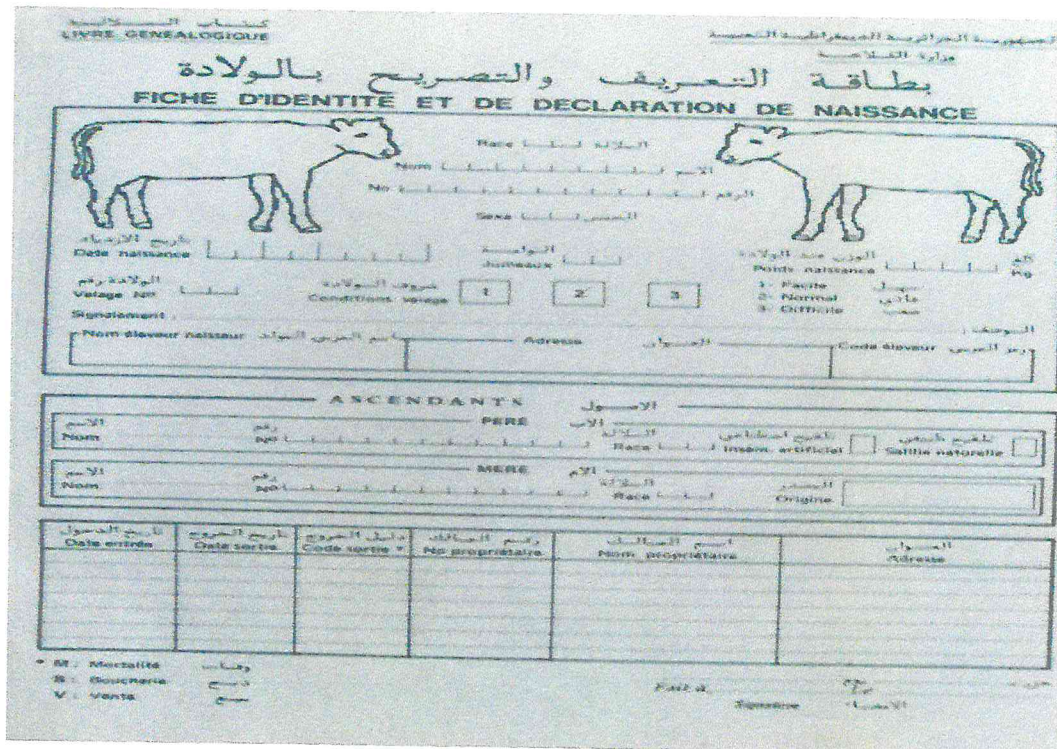 كتاب السلالية
LIVRE GENEALOGIQUE
الجمهورية الجزائرية الديمقراطية الشعبية
وزارة الفلاحة
بطاقة التعريف والتصريح بالولادة
FICHE D'IDENTITE ET DE DECLARATION DE NAISSANCE
Race السلالة
Nom الاسم
No الرقم
Sexe الجنس
تاريخ الازدياد
Date naissance
Jumeaux
الوزن عند الولادة كلغ
Poids naissance Kg
الولادة رقم
Velage Nº
ظروف الولادة
Conditions velage 1 2 3
1- Facile سهل
2- Normal عادي
3- Difficile صعب
Signalement : الوصف :
Nom éleveur naisseur اسم المربي المولد
Adresse العنوان
Code éleveur رمز المربي
ASCENDANTS الاصول
PERE الأب
الاسم رقم السلالة تلقيح اصطناعي تلقيح طبيعي
Nom Nº Race Insém. artificiel Saillie naturelle
MERE الأم
الاسم رقم السلالة المصدر
Nom Nº Race Origine
تاريخ الدخول تاريخ الخروج دليل الخروج رقم المالك اسم المالك العنوان
Date entrée Date sortie Code sortie * No propriétaire Nom propriétaire Adresse
* M : Mortalité وفيات
B : Boucherie ذبح
V : Vente بيع
Fait à
Signature الامضاء